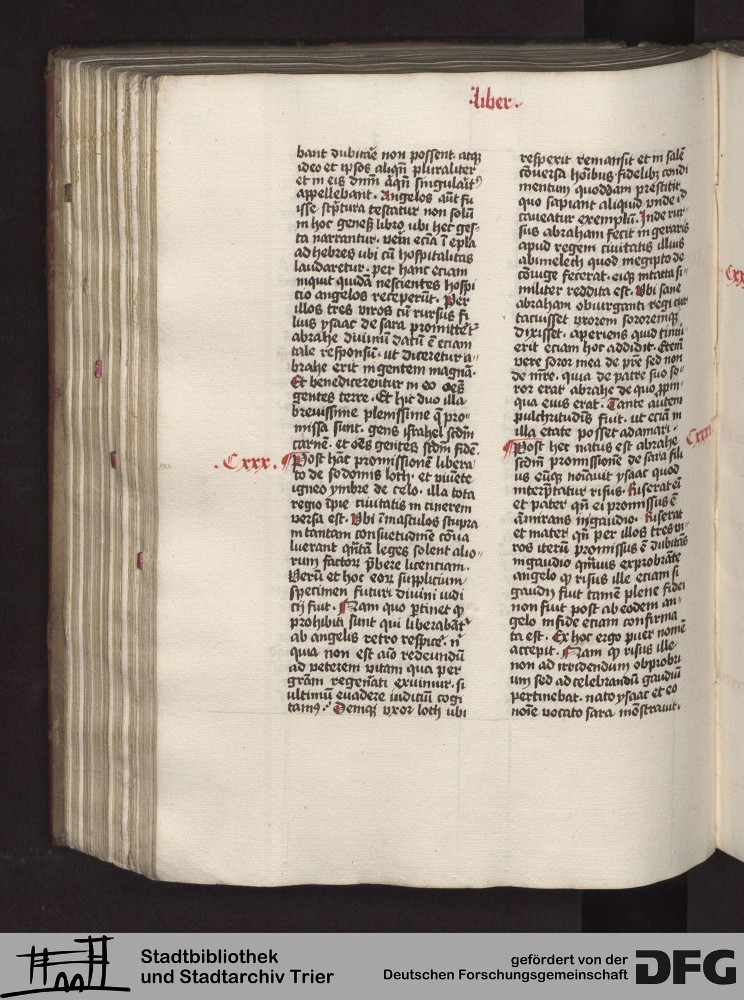 Liber.
bant dubitare non possent atq;
ideo et ipsos aliqñ pluraliter
et in eis dnm̄ aliqñ singularit᷑
appellebant. Angelos aūt fu
isse sc̄ptura testatur non solū
in hoc genes̄ libro ubi hec ges
ta narrantur. ver̄ etiā ī epl̄a
ad hebreos ubi cū hospitalitas
laudaretur. per hanc etiam
inquit quidā nescientes hospi
cio angelos receperūt. Per
illos tres viros cū rursus fi
lius ysaac de sara promittet᷑
abrahe divinū datū ē etiam
tale responsū. ut diceretur a
brahe erit in gentem magnā.
Et benedicerentur in eo oēs
gentes terre. Et hic duo illa
brevissime plenissime q̄ pro
missa sunt. gens israhel scdm̄
carnē. et oēs gentes scdm̄ fidē.
Cxxx. Post hāc promissionē libera
to de sodomis loth. et veniēte
igneo ymbre de celo. illa tota
regio īpie civitatis in cinerem
versa est. Ubi ī masculos stupra
in tantam consuetudinē cōva
luerant quātā leges solent alio
rum factor̄ p̄bere licenciam.
Verū et hoc eor̄ supplicium
specimen futuri divini iudi
cij fuit. Nam quo ꝑtinet q̄
prohibiti sunt qui liberabāt᷑
ab angelis retro respicē. n̄
quia non est aīo redeundū
ad veterem vitam qua per
grām regen̄ati exuimur. si
ultimū evadere iuditiū cogi
tamꝰ. Deniq; uxor loth ubi
respexit remansit et in salē
cōversa hōibus fidelib; condi
mentum quoddam prestitit
quo sapiant aliquid unde
caveatur exemplū. Inde rur
sus abraham fecit in geraris
apud regem civitatis illius
abimelech quod in egipto de
cōiuge fecerat. eiq; intacta si
militer reddita est. Ubi sane
abraham obiurganti regi cur
tacuisset uxorem sororemq;
dixisset. aperiens quid timu
erit etiam hoc addidit. Etenī
vere soror mea de pr̄e sed non
de mr̄e. quia de patre suo so
ror erat abrahe de quo ꝓpin
qua eius erat. Tante autem
pulchritudinis fuit. ut etiā in
illa etate posset adamari.
Cxxxi Post hec natus est abrahe
scdm̄ promissionē de sara fili
us eūq; nōavit ysaac quod
interp̄tatur risus. Riserat eī
et pater qñ ei promissus ē
āmirans in gaudio. Riserat
et mater qñ per illos tres vi
ros iterū promissus ē dubitās
in gaudio q̄mvis exprobrāte
angelo q̄ risus ille etiam si
gaudij fuit tamē plene fidei
non fuit post ab eodem an
gelo in fide etiam confirma
ta est. Ex hoc ergo puer nomē
accepit. Nam q̄ risus ille
non ad irridendum obprobri
um sed ad celebrandū gaudiū
pertinebat. nato ysaac et eo
noīe vocato sara mōstravit.
Stadtbibliothek
und Stadtarchiv Trier
gefördert von der
Deutschen Forschungsgemeinschaft
DFG